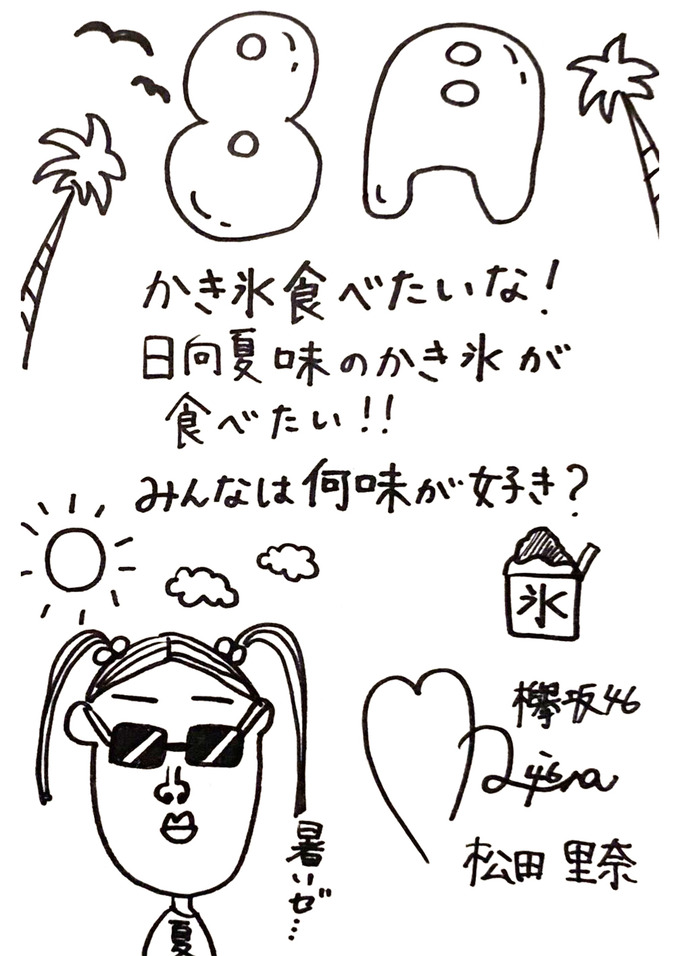 8月
かき氷食べたいな！
日向夏味のかき氷が
食べたい!!
みんなは何味が好き？
氷
欅坂46
松田里奈
暑いゼ…
夏